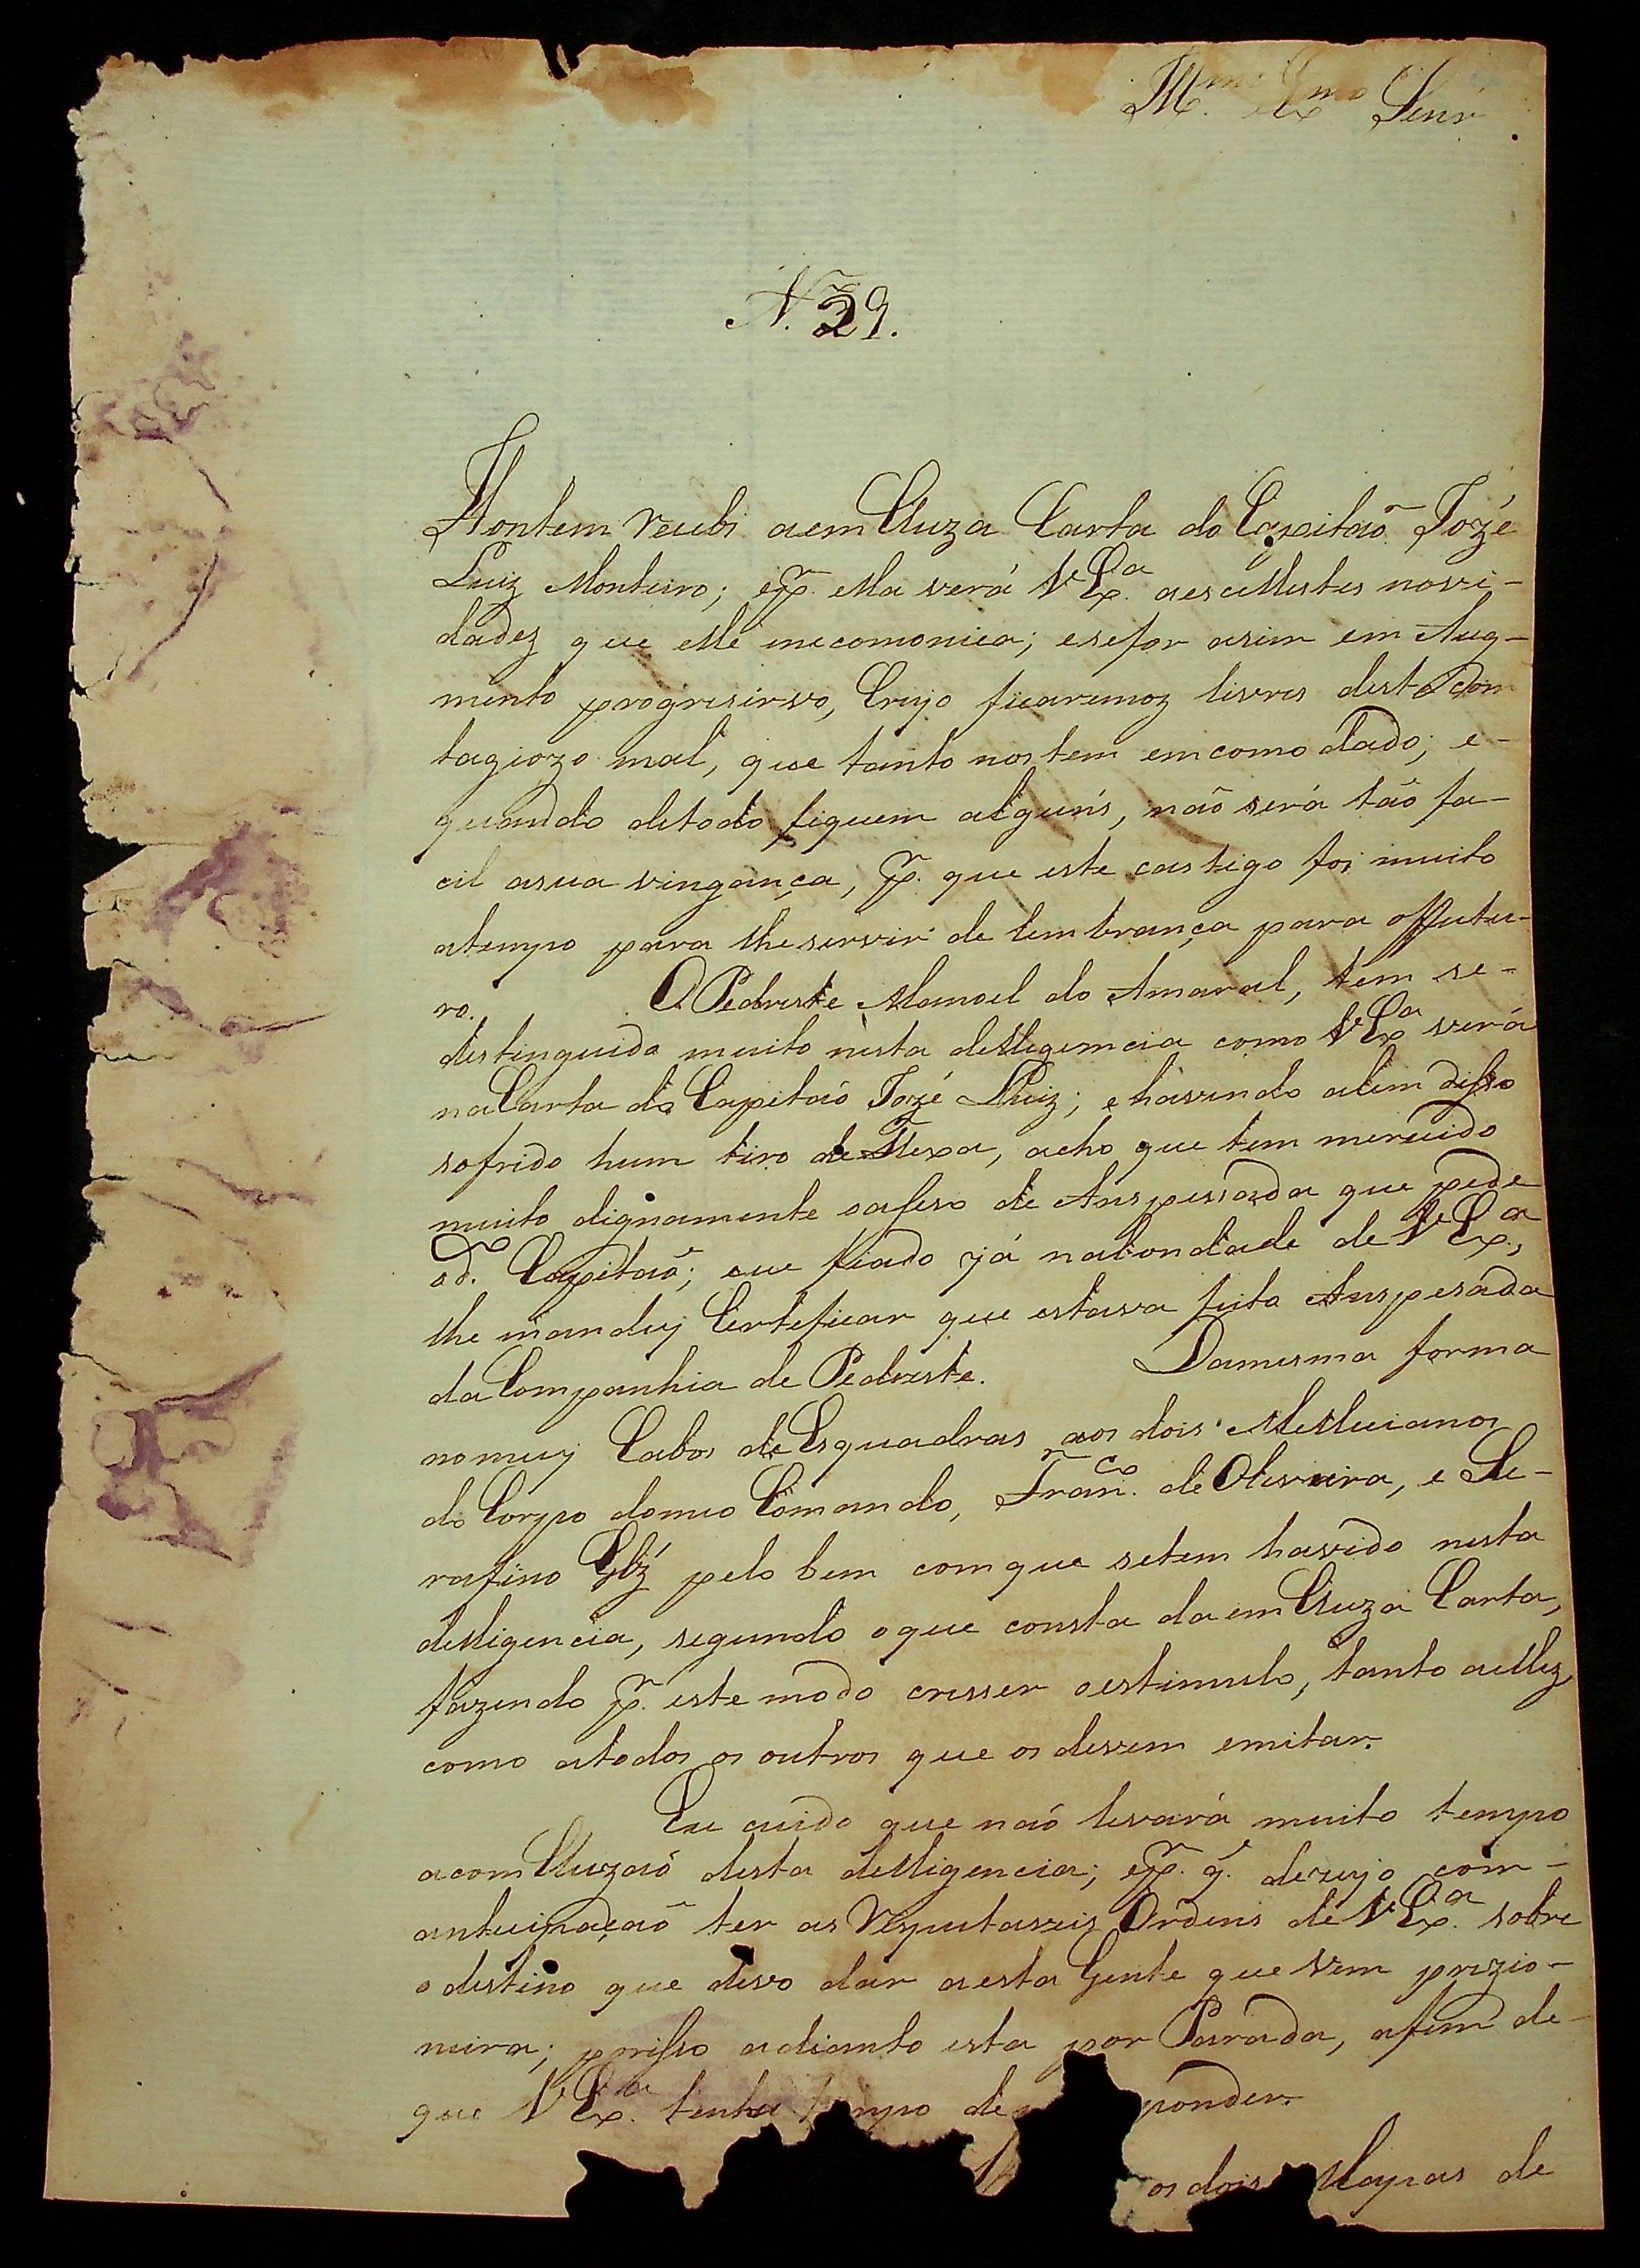 Ill.mo Ex.mo Senr
N. 29.
Hontem recebi aemCluza Carta do Capitaõ Jozé
Luiz Monteiro; epr. ella verá VEx.a aescellentes novi-
dadez que elle mecomonica; esefor asim em Aug-
mento progresivo, Creyo ficaremoz livres deste Con
tagiozo mal, que tanto nostem emcomodado; e-
quando detodo fiquem alguns, naõ será taõ fa-
cil asua vingança, pr. que este castigo foi muito
atempo para lheservir de lembrança para offutu-
ro. O Pedreste Manoel do Amaral, tem se-
destinguido muito nesta delligemcia como VEx.a verá
naCarta do Capitaõ Jozé Luiz; ehavendo alem disso
sofrido hum tiro de Flexa, acho que tem merecido
muito dignamente oafeso de Anspessada que pede
od.o Capitaõ; eue fiado já nabondade de VEx.a,
lhe mandey Certeficar que estava feito Anspesada
daCompanhia de Pedreste. Damesma forma
nomiey Cabos deEsquadras aos dois Melicianos
do Corpo domeo Comando, Fran.co de Oliveira, e Se-
rafino Glz' pelo bem comque setem havido nesta
delligencia, segundo oque consta daemCluza Carta,
fazendo pr. este modo cresser oestimulo, tanto aellez,
como atodos os outros que os devem emitar.
Eu cuido que naõ levará muito tempo
acomCluzaõ desta delligencia; epr. q. dezejo com-
antecipaçaõ ter as Respeitaveis Ordens de VEx.a sobre
odestino que devo dar aesta Gente que vem prizio-
neira; porisso adianto esta por Parada, afim de-
que VEx.a tenha tempo de ponder.
os dois Mapas de